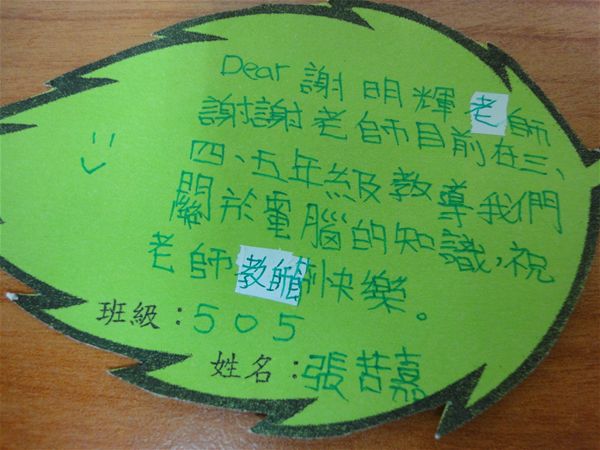 Dear 謝明輝老師
謝謝老師目前在三、
四、五年級教導我們
關於電腦的知識,祝
老師教師節快樂。
班級:505
姓名:張芸嘉